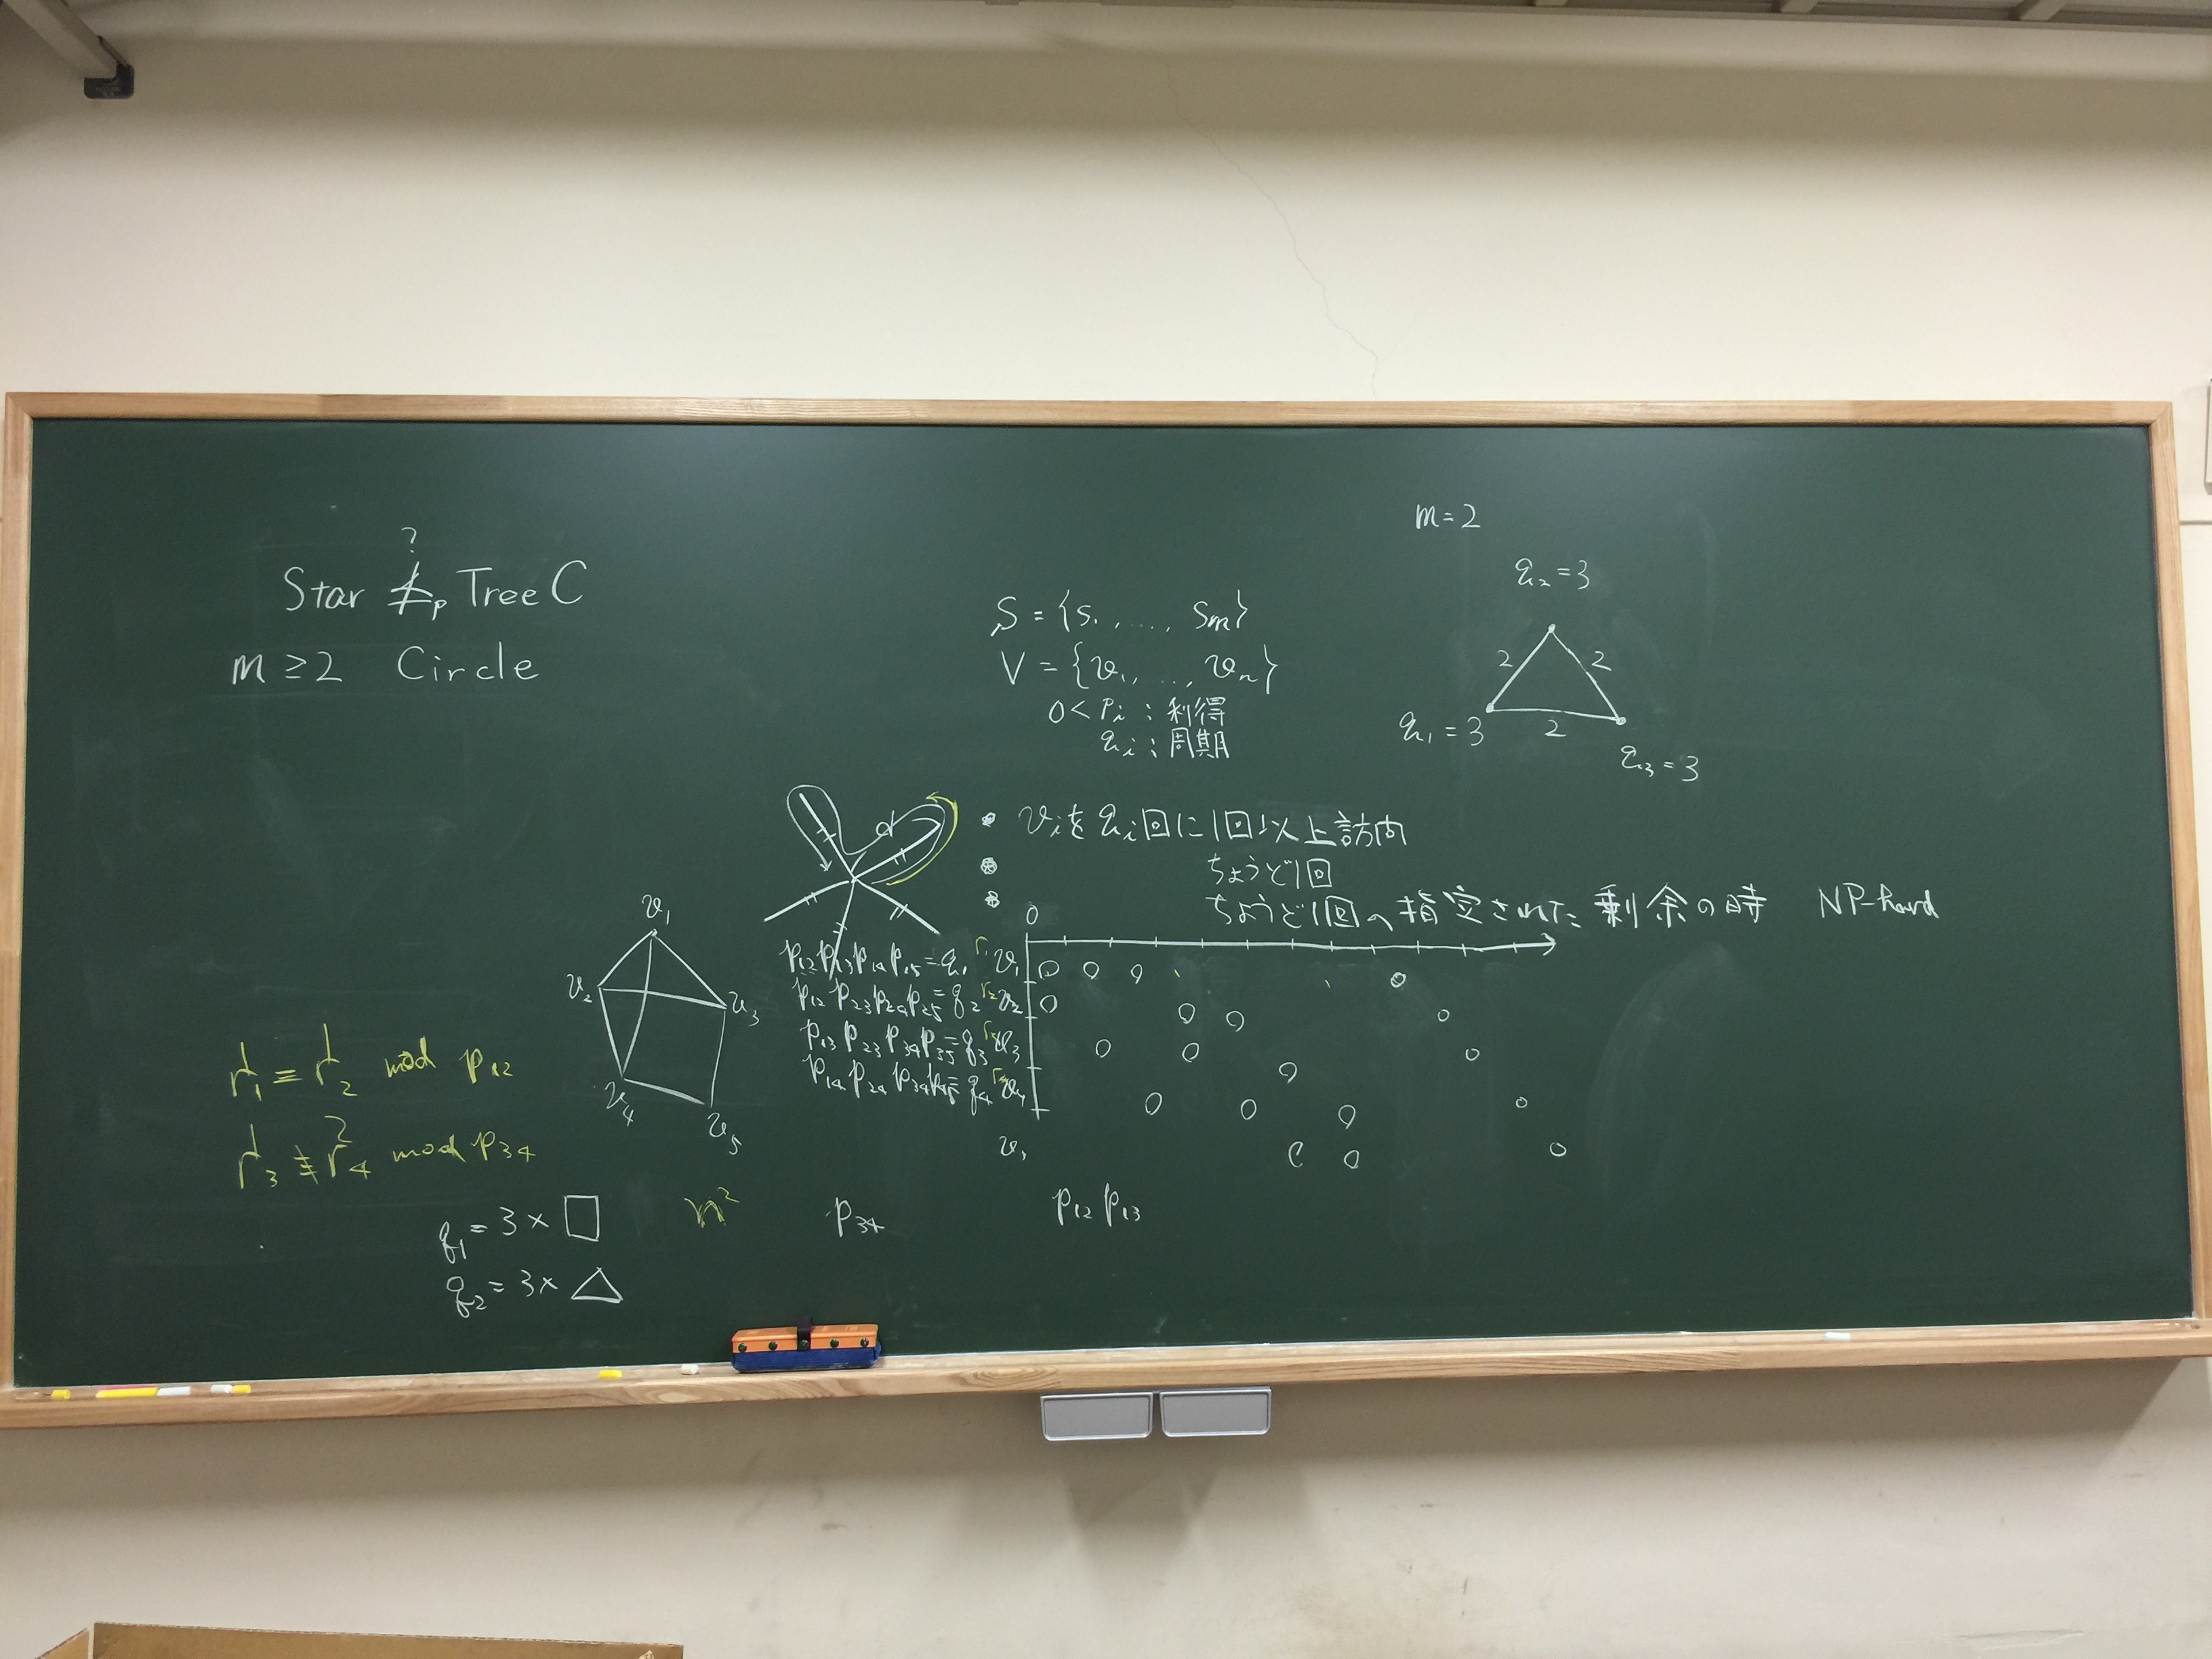 ?
Star ≠p Tree C
m ≥ 2 Circle
S = {s₁, ..., sm}
V = {v₁, ..., vn}
0 < pi : 利得
qi : 周期
m = 2
q₂ = 3
2 2
q₁ = 3 2
q₃ = 3
d
• viをqi回に1回以上訪問
• ちょうど1回
• ちょうど1回、指定された剰余の時 NP-hard
0
v₁
v₂ v₃
v₄ v₅
p₁₂ p₁₃ p₁₄ p₁₅ = q₁ r₁ v₁
p₁₂ p₂₃ p₂₄ p₂₅ = q₂ r₂ v₂
p₁₃ p₂₃ p₃₄ p₃₅ = q₃ v₃
p₁₄ p₂₄ p₃₄ p₄₅ = q₄ v₄
r₁ ≡ r₂ mod p₁₂
r₃ ≢ r₄ mod p₃₄
q₁ = 3 × □
q₂ = 3 × △
n²
p₃₄
p₁₂ p₁₃